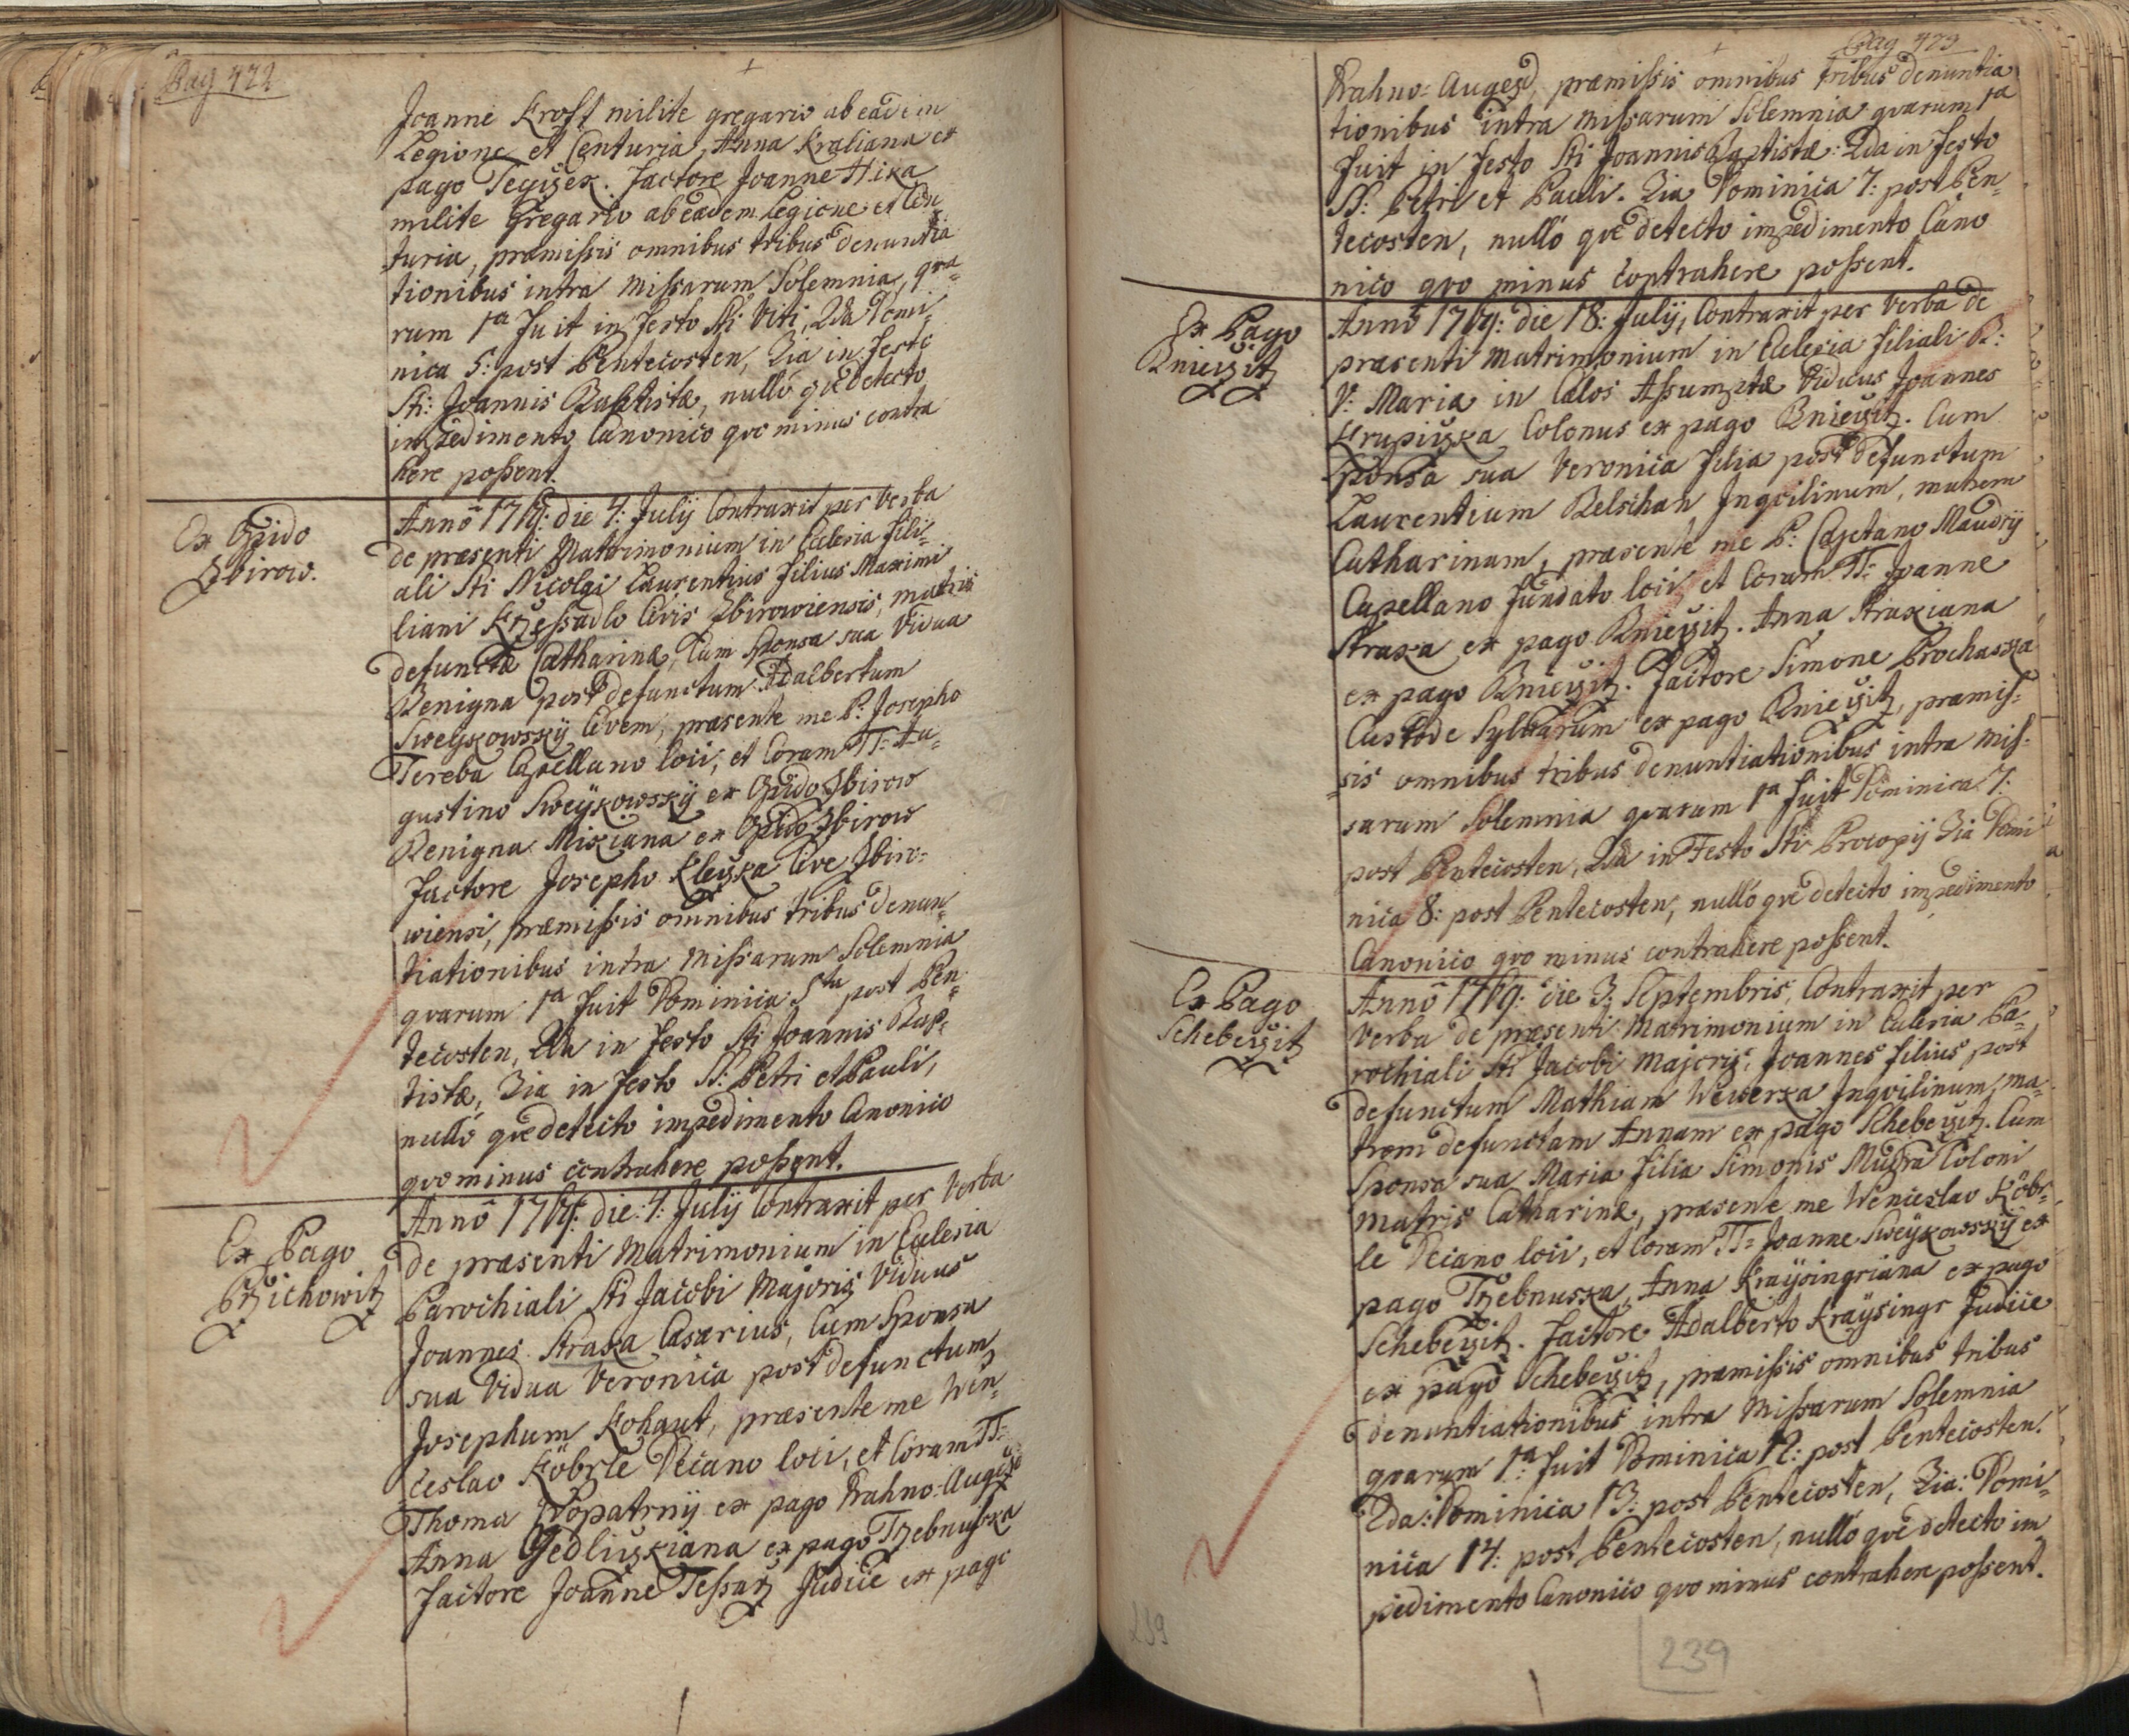 Pag 422
Joanne Kroft milite gregario ab eadem
Legione et Centuria, Anna Kraliana ex
pago Teyczek. Factore Joanne Hika
milite Gregario ab eadem Legione et Cen-
turia, præmissis omnibus tribus denuntia
tionibus intra missarum Solemnia, qva-
rum 1a Fuit in Festo Sti Viti, 2da Domi-
nica 5: post Pentecosten, 3ia in Festo
Sti: Joannis Baptistæ, nulló qve detecto
impedimento Canonico qvo minus contra
here possent.
Ex Opido
Zbirow.
Annô 1769: die 4: Julij Contraxit per Verba
de præsenti Matrimonium in Ecclesia Fili-
ali Sti Nicolai Laurentius Filius Maximi
liani Krzessadlo Civis Zbirowiensis, matris
defunctæ Catharinæ, Cum Sponsa sua Vidua
Benigna post defunctum Adalbertum
Sweykowsky Civem, præsente me P: Josepho
Tereba Capellano loci, et Coram TT: Au-
gustino Sweÿkowskÿ ex Opido Zbirow
Benigna Mikiana ex Opido Zbirow
Factore Josepho Kleczka Cive Zbiro-
wiensi, præmissis omnibus tribus denun-
tiationibus intra missarum Solemnia
qvarum 1a Fuit Dominica 5ta post Pen-
tecosten, 2da in Festo Sti Joannis Bap-
tistæ, 3ia in Festo SS: Petri et Pauli,
nulló qve detecto impedimento Canonico
qvo minus contrahere possent.
Ex Pago
Przichowitz
Annô 1769: die: 4: Julij Contraxit per Verba
de præsenti Matrimonium in Ecclesia
Parochiali Sti Jacobi Majoris Viduus
Joannes Straka Casarius, Cum Sponsa
sua Vidua Veronica post defunctum
Josephum Kohaut, præsente me Wen-
ceslao Köbrle Decano loci, et Coram TT:
Thoma Wopatrnÿ ex pago Drahno-Augezd
Anna Gedliczkiana ex pago Trzebnuska
Factore Joanne Tessarz Judice ex pago
Pag 423
Drahno-Augezd, præmissis omnibus tribus denuntia
tionibus intra missarum Solemnia qvarum 1a
Fuit in Festo Sti Joannis Baptistæ: 2da in Festo
SS: Petri et Pauli. 3ia Dominica 7: post Pen-
tecosten, nulló qve detecto impedimento Cano
nico qvo minus contrahere possent.
Ex Pago
Kniezitz
Annô 1769: die 18: Julij, Contraxit per Verba de
præsenti Matrimonium in Ecclesia Filiali B:
V: Maria in Cælos Assumptæ Viduus Joannes
Krupiczka Colonus ex pago Kniezitz. Cum
Sponsa sua Veronica Filia post defunctum
Laurentium Belschan Inqvilinum, matrem
Catharinam, præsente me P: Cajetano Maudrÿ
Capellano Fundato loci, et Coram TT: Joanne
Straka ex pago Kniezitz. Anna Strakiana
ex pago Kniezitz. Factore Simone Prochaska
Custode Sylvarum ex pago Kniezitz, præmis-
sis omnibus tribus denuntiationibus intra mis-
sarum Solemnia qvarum 1a Fuit Dominica 7:
post Pentecosten, 2da in Festo Sti Procopij 3ia Domi
nica 8: post Pentecosten, nulló qve detecto impedimento
Canonico qvo minus contrahere possent.
Ex Pago
Schebeczitz
Annô 1769: die 3: Septembris, Contraxit per
Verba de præsenti Matrimonium in Ecclesia Pa-
rochiali Sti Jacobi Majoris, Joannes Filius post
defunctum Mathiam Wewerka Inqvilinum, ma-
trem defunctam Annam ex pago Schebeczitz. Cum
Sponsa sua Maria Filia Simonis Mudra Coloni
matris Catharinæ, præsente me Wenceslao Köbr-
le Decano loci, et Coram TT: Joanne Sweÿkowskÿ ex
pago Trzebnuska, Anna Kraÿsingriana ex pago
Schebeczitz. Factore Adalberto Kraÿsingr Judice
ex pago Schebeczitz, præmissis omnibus tribus
denuntiationibus intra Missarum Solemnia
qvarum 1a: Fuit Dominica 12: post Pentecosten.
2da: Dominica 13: post Pentecosten, 3ia: Domi-
nica 14: post Pentecosten, nulló qve detecto im
pedimento Canonico qvo minus contrahere possent.
239
239